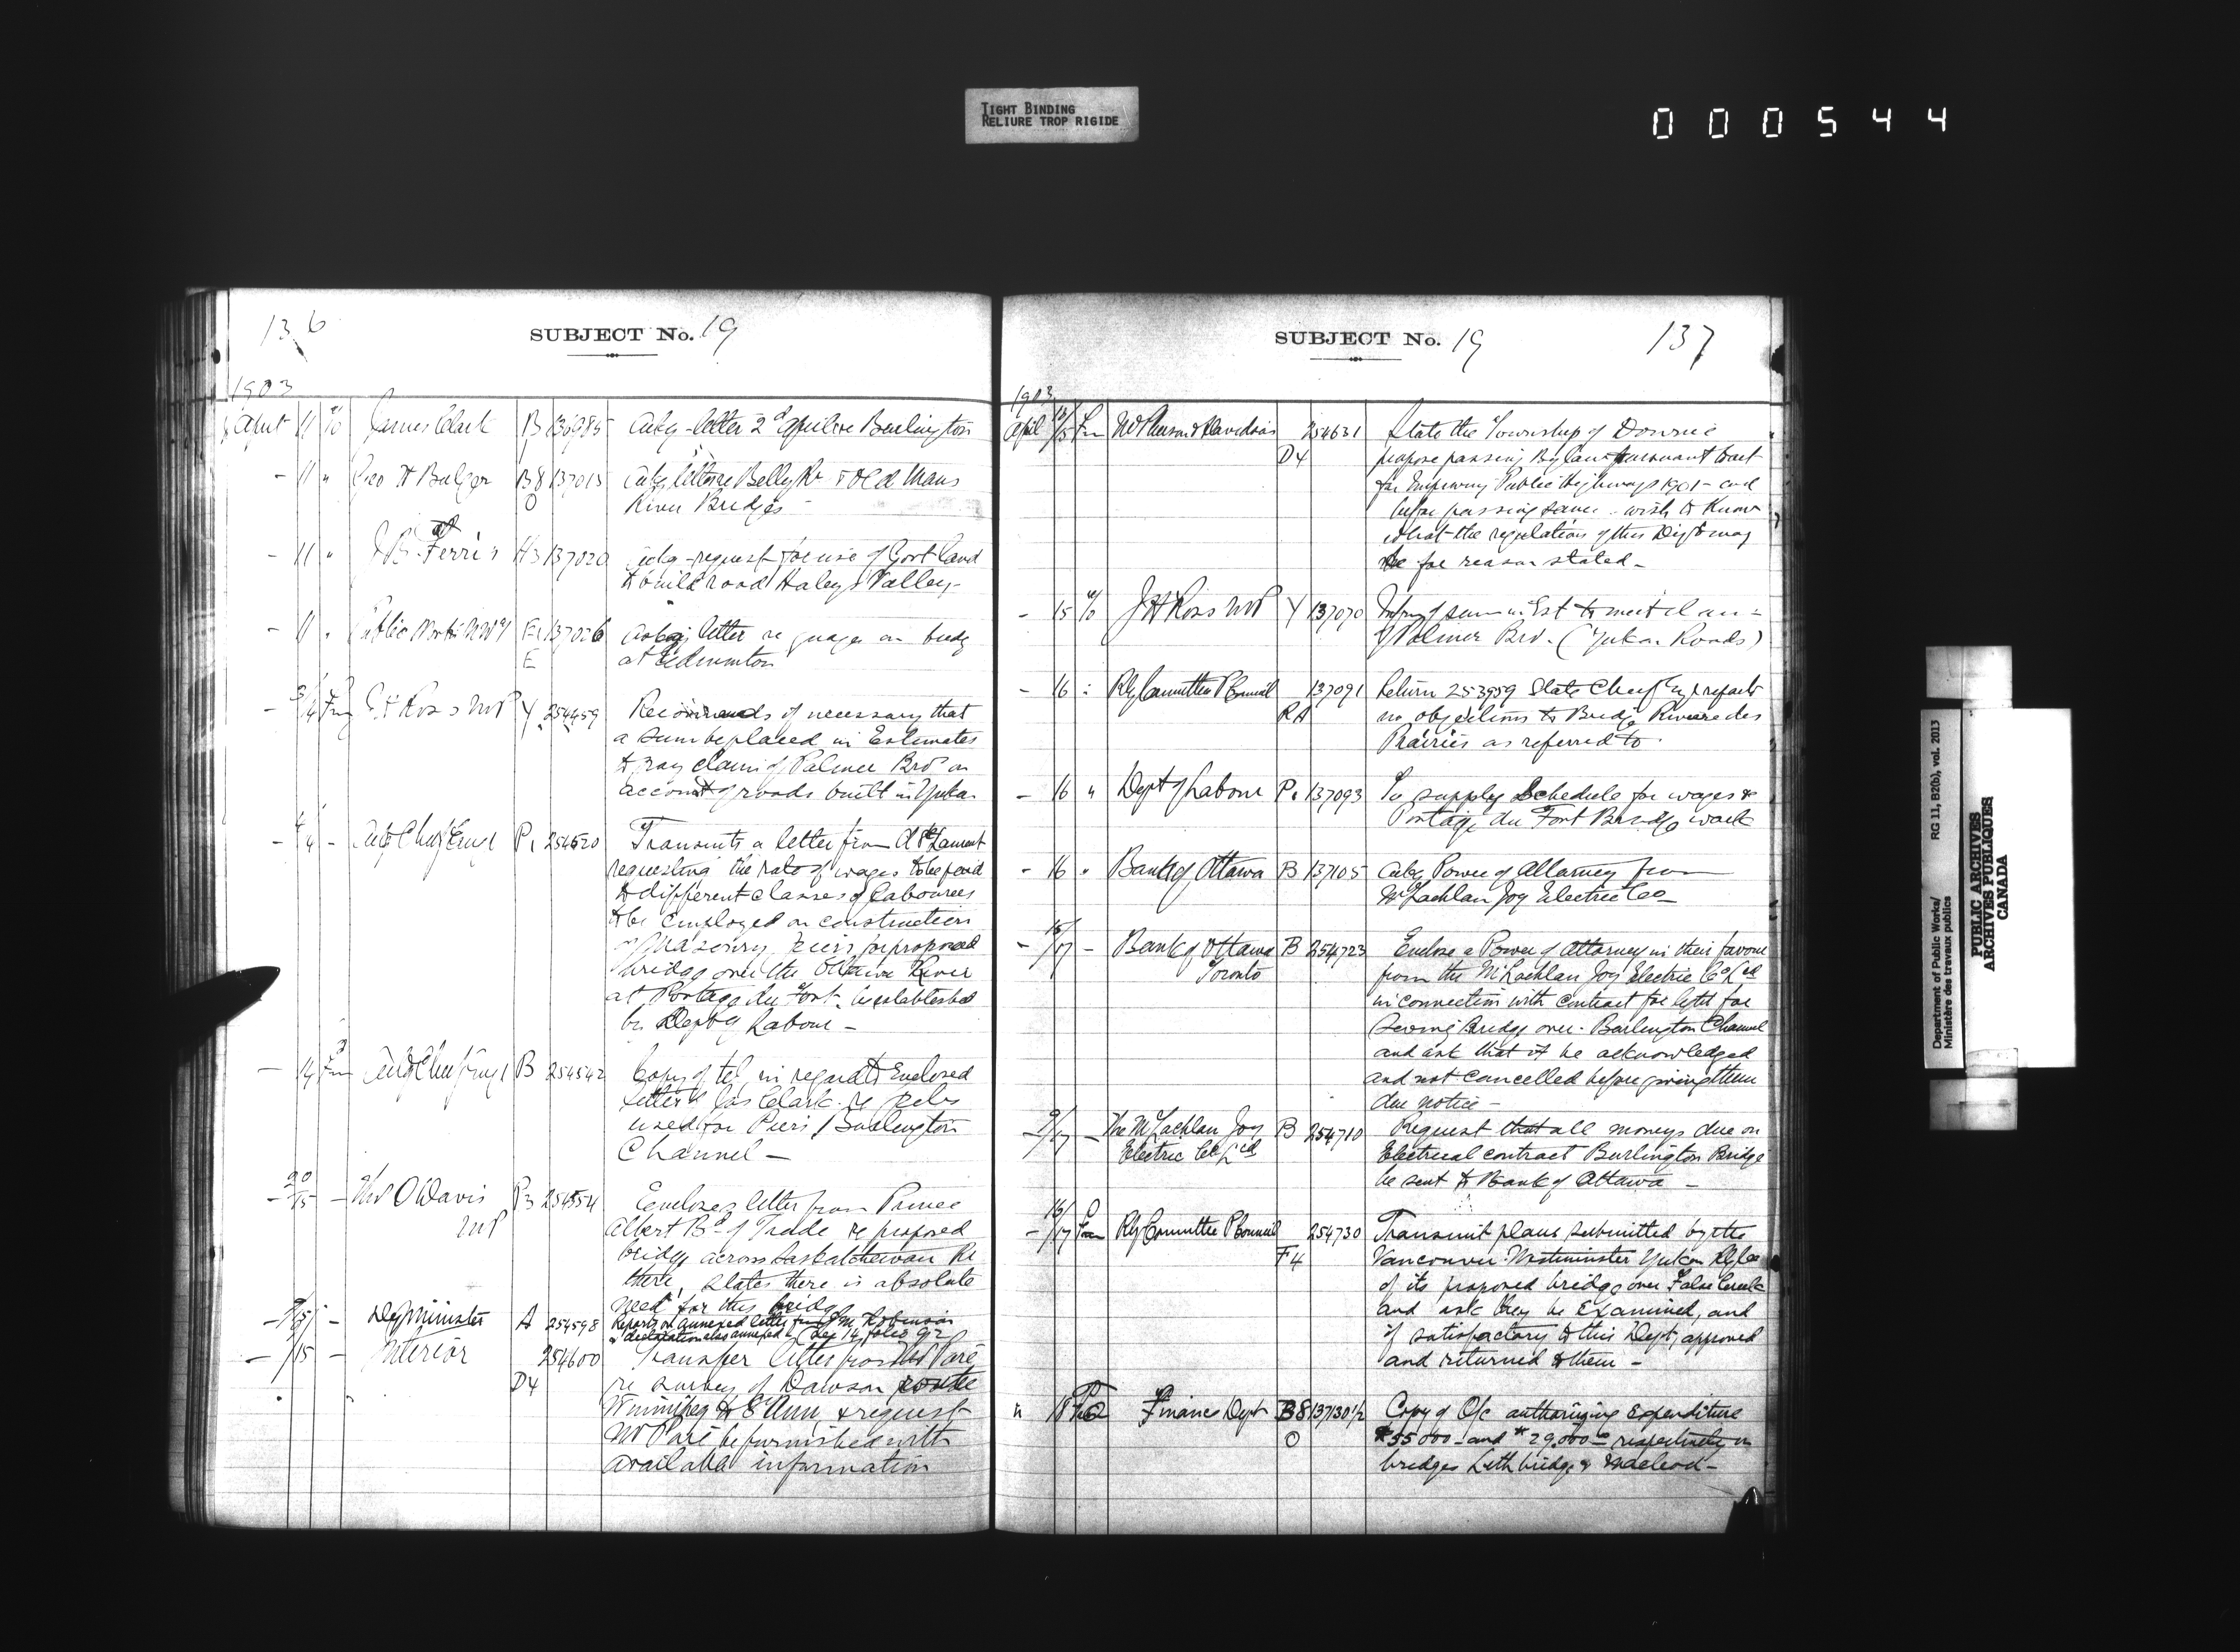 TIGHT BINDING
RELIURE TROP RIGIDE
000544
136
SUBJECT No. 19
1903
April 11 To James Clark B 136985 letter 2d April re Burlington
- 11 " Geo H Bulger B8 137015 letter re Belly Rr & Old Mans
O River Bridges
- 11 " J B Ferris H3 137020 request for use of Govt land
to build road Haleys Valley -
- 11 " Public Works NWT E1 137026 letter re gauges on bridge
E at Edmonton
- 3/14 Fm J H Ross MP Y 254459 Recommends if necessary that
a sum be placed in Estimates
to pay claim of Palmer Bros on
account of roads built in Yukon
- 4/14 - Actg Chf Engr P1 254520 Transmits a letter from Lamont
requesting the rate of wages to be paid
to different classes of labourers
to be employed on construction
of masonry piers for proposed
bridge over the Ottawa River
at Portage du Fort be established
by Dept of Labour -
- 14 Fm Actg Chf Engr B 254542 Copy of tel in regard to Enclosed
letter Jas Clark re piles
used for Piers Burlington
Channel -
- 20/15 - Thos O Davis P3 254554 Encloses letter from Prince
MP Albert Bd of Trade re proposed
bridge across Saskatchewan Rr
there, states there is absolute
need for this bridge
- 15 - Dep Minister A 254598 Reports on annexed letter from Robinson
declaration also annexed (Leg 14 folio 912)
- 15 - Interior 254600 Transfer letter from Mr Paré
D4 re survey of Dawson route
Winnipeg to St Ann & request
Mr Paré be furnished with
available information
SUBJECT No. 19
137
1903
April 13/15 Fm McPherson & Davidson 254631 State the Township of Downie
D4 propose passing By law pursuant to act
for Improving Public Highways 1901 - and
before passing same - wish to know
what the regulations of this Dept may
be for reason stated -
- 15 To J H Ross MP Y 137070 Infmg sum in Est to meet claim
of Palmer Bro. (Yukon Roads)
- 16 " Rly Committee P Council 137091 Return 253959 State Chief Engr reports
RA no objections to Bridge Riviere des
Prairies as referred to.
- 16 " Dept of Labour P1 137093 To supply Schedule for wages re
Portage du Fort Bridge work
- 16 " Bank of Ottawa B 137105 Power of Attorney from
McLachlan Joy Electric Co
- 15/17 - Bank of Ottawa B 254723 Enclose a Power of Attorney in their favour
Toronto from the McLachlan Joy Electric Co Ld
in connection with contract for light for
Swing Bridge over Burlington Channel
and ask that it be acknowledged
and not cancelled before giving them
due notice -
- 9/17 - The McLachlan Joy B 254710 Request that all moneys due on
Electric Co Ld Electrical contract Burlington Bridge
be sent to Bank of Ottawa -
- 16/17 Fm Rly Committee P Council 254730 Transmit plans submitted by the
F4 Vancouver Westminster Yukon Rly Co
of its proposed bridge over False Creek
and ask they be Examined, and
if satisfactory to this Dept, approved
and returned to them -
" 18 To Finance Dept B8 137130 1/2 Copy of O/c authorizing Expenditure
O $35000 - and $29,000 - respectively on
bridges Lethbridge & Macleod -
Department of Public Works/
Ministère des travaux publics
RG 11, B2(b), vol. 2013
PUBLIC ARCHIVES
ARCHIVES PUBLIQUES
CANADA